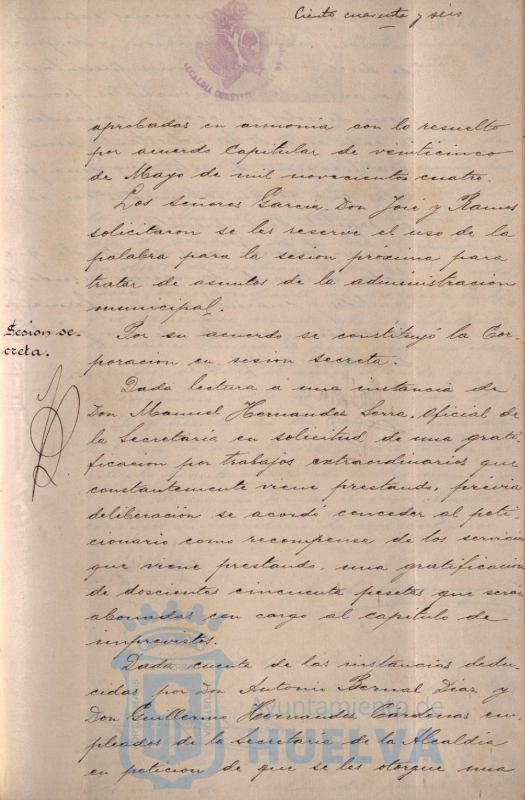 Ciento cuarenta y seis
aprobadas en armonia con lo resuelto
por acuerdo Capitular de veinticinco
de Mayo de mil novecientos cuatro.
Los Señores Garcia. Don José y Ramos
solicitaron se les reserve el uso de la
palabra para la sesion próxima para
tratar de asuntos de la administracion
municipal.
Sesion se-
creta.
Por su acuerdo se constituyó la Cor-
poracion en sesion secreta.
Dada lectura á una instancia de
Don Manuel Hernandes Serra, Oficial de
la Secretaría en solicitud de una grati-
ficacion por trabajos extraordinarios que
constantemente viene prestando, prévia
deliberación se acordó conceder al peti-
cionario como recompensa de los servicios
que viene prestando, una gratificacion
de doscientas cincuenta pesetas que serán
abonadas con cargo al capitulo de
imprevistos.
Dada cuenta de las instancias dedu-
cidas por Don Antonio Bernal Diaz y
Don Guillermo Hernandes Cardenas em-
pleados de la Secretaria de la Alcaldía
en peticion de que se les otorgue una
Ayuntamiento de
HUELVA